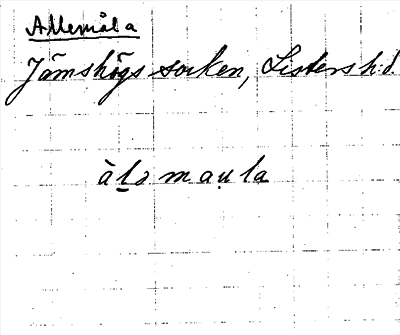 Allemåla
Jämshögs socken, Listers h:d.
àl̲ə mau̯la